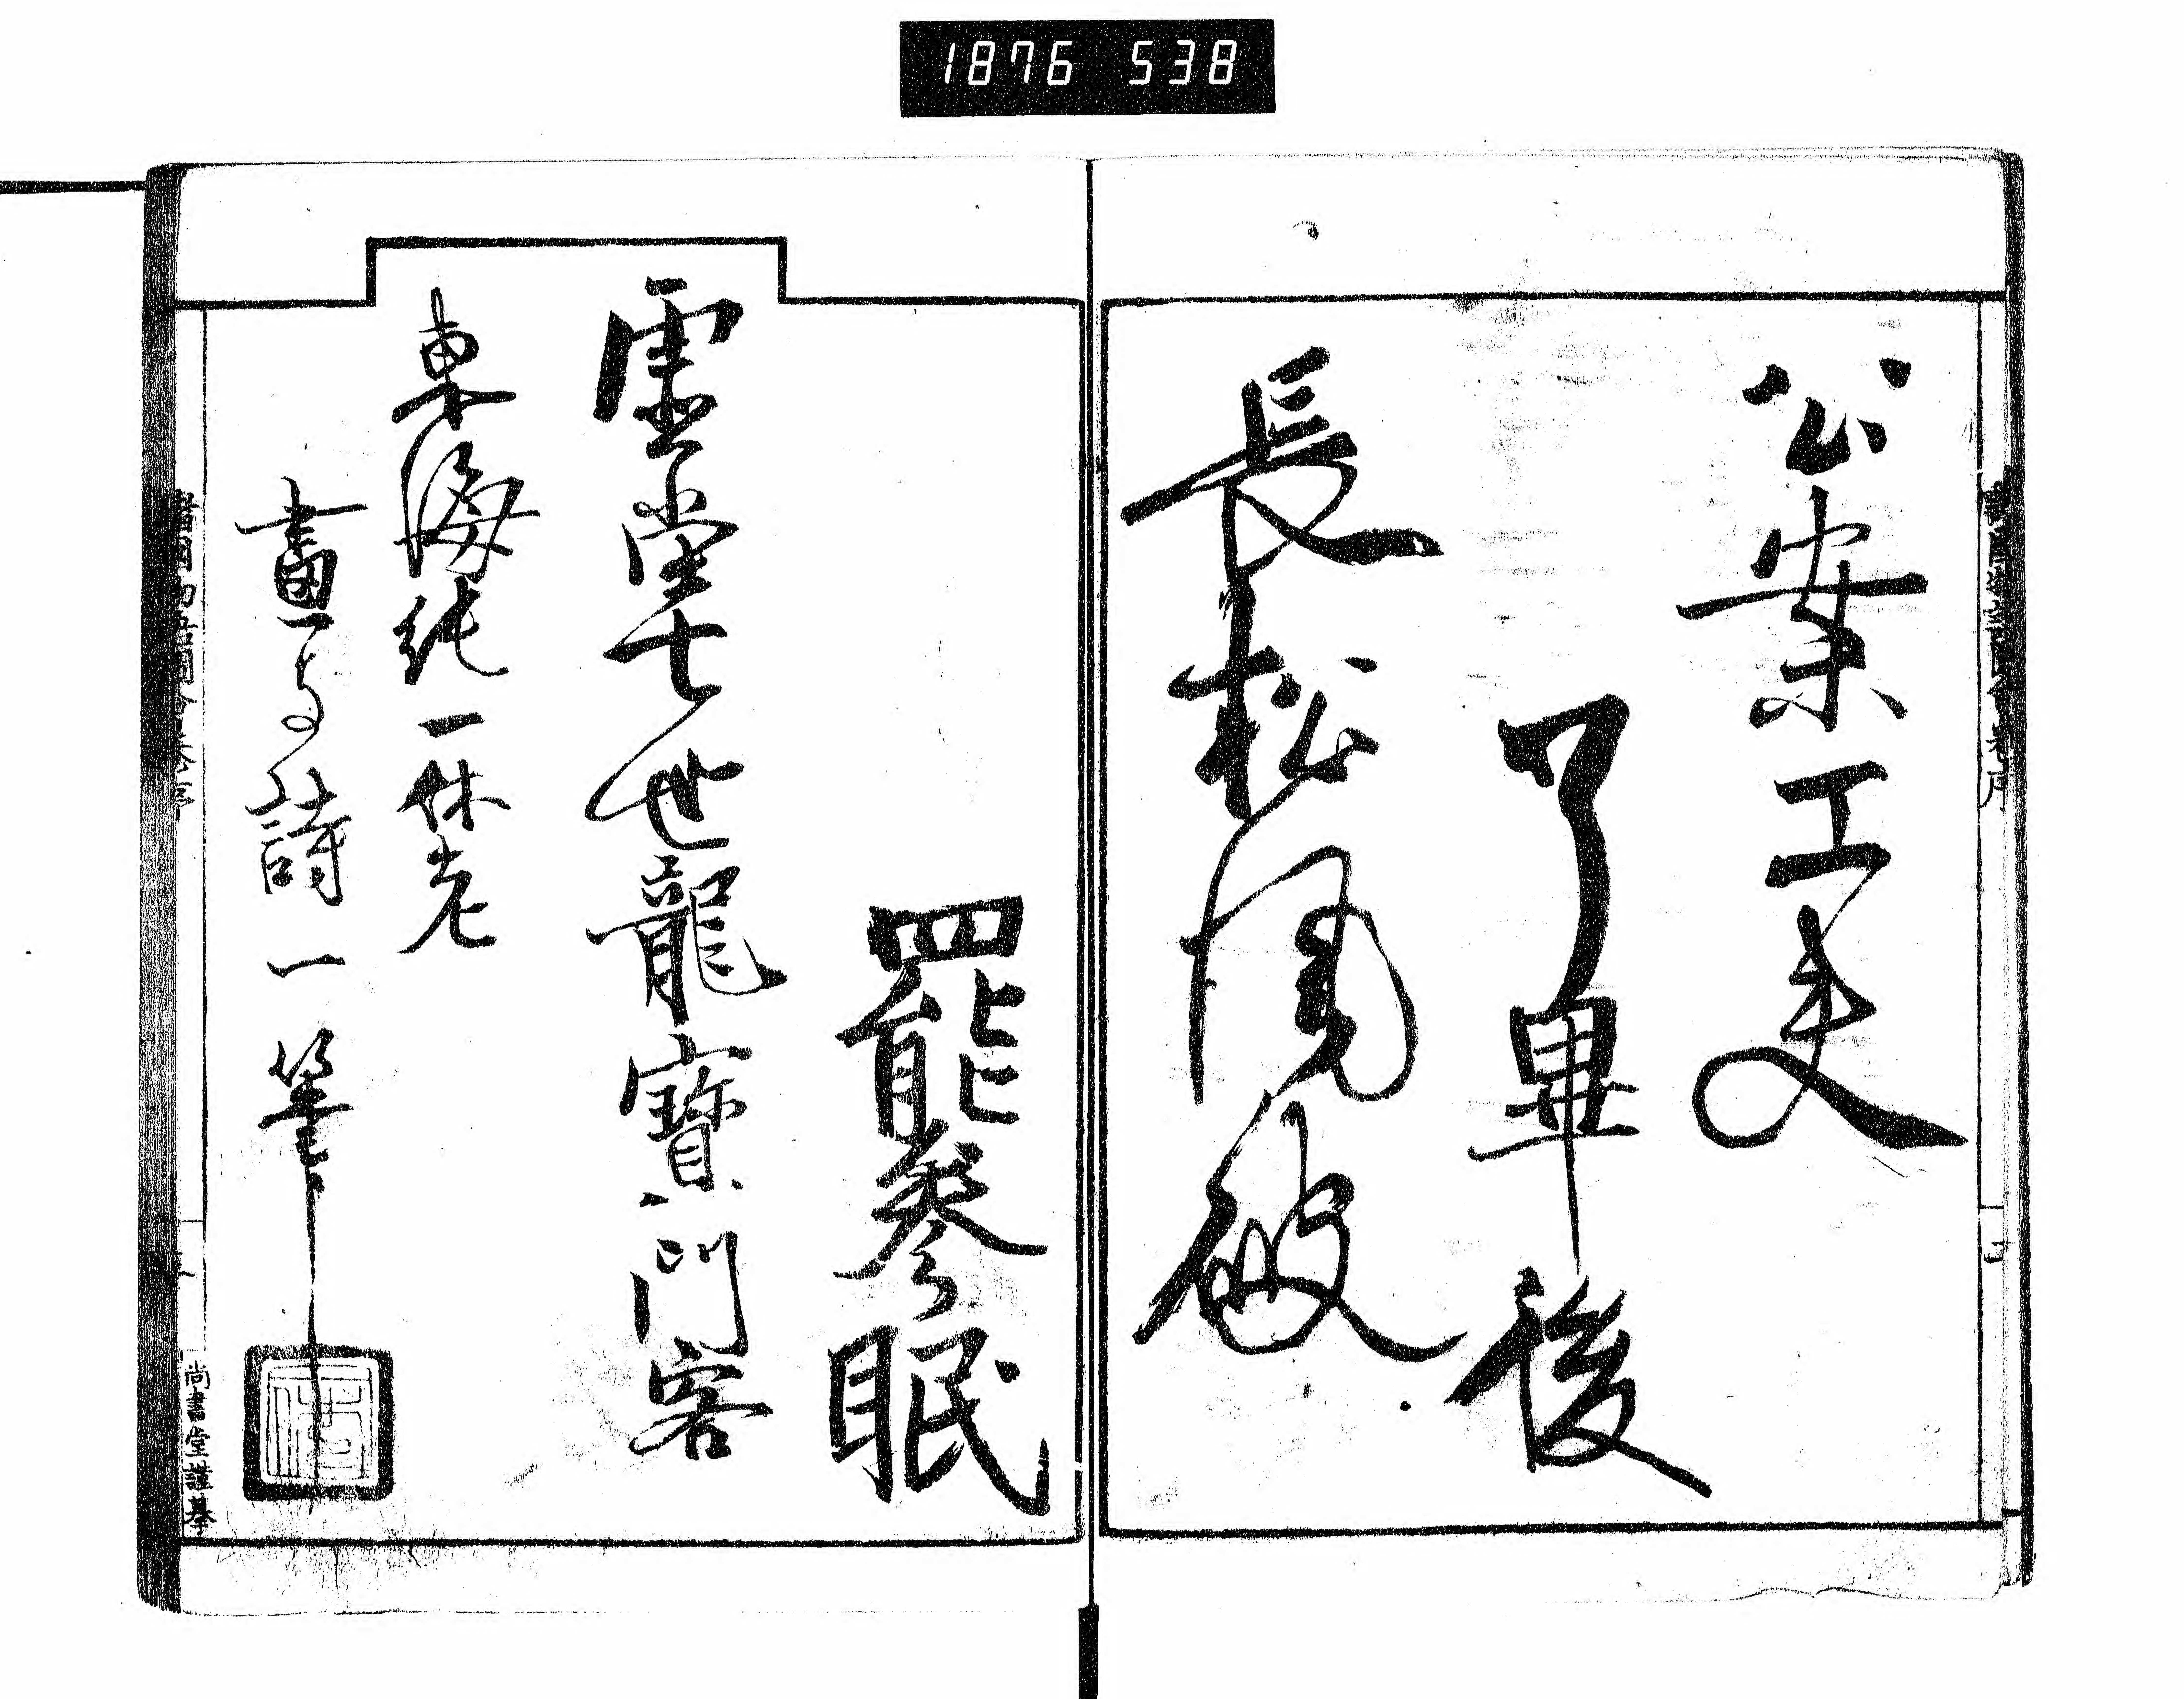 1876 538
公案工夫
了畢後
長松風破
罷參眠
虚堂七世龍寶門客
東海純一休老
畫与詩一筆
尚書堂謹摹